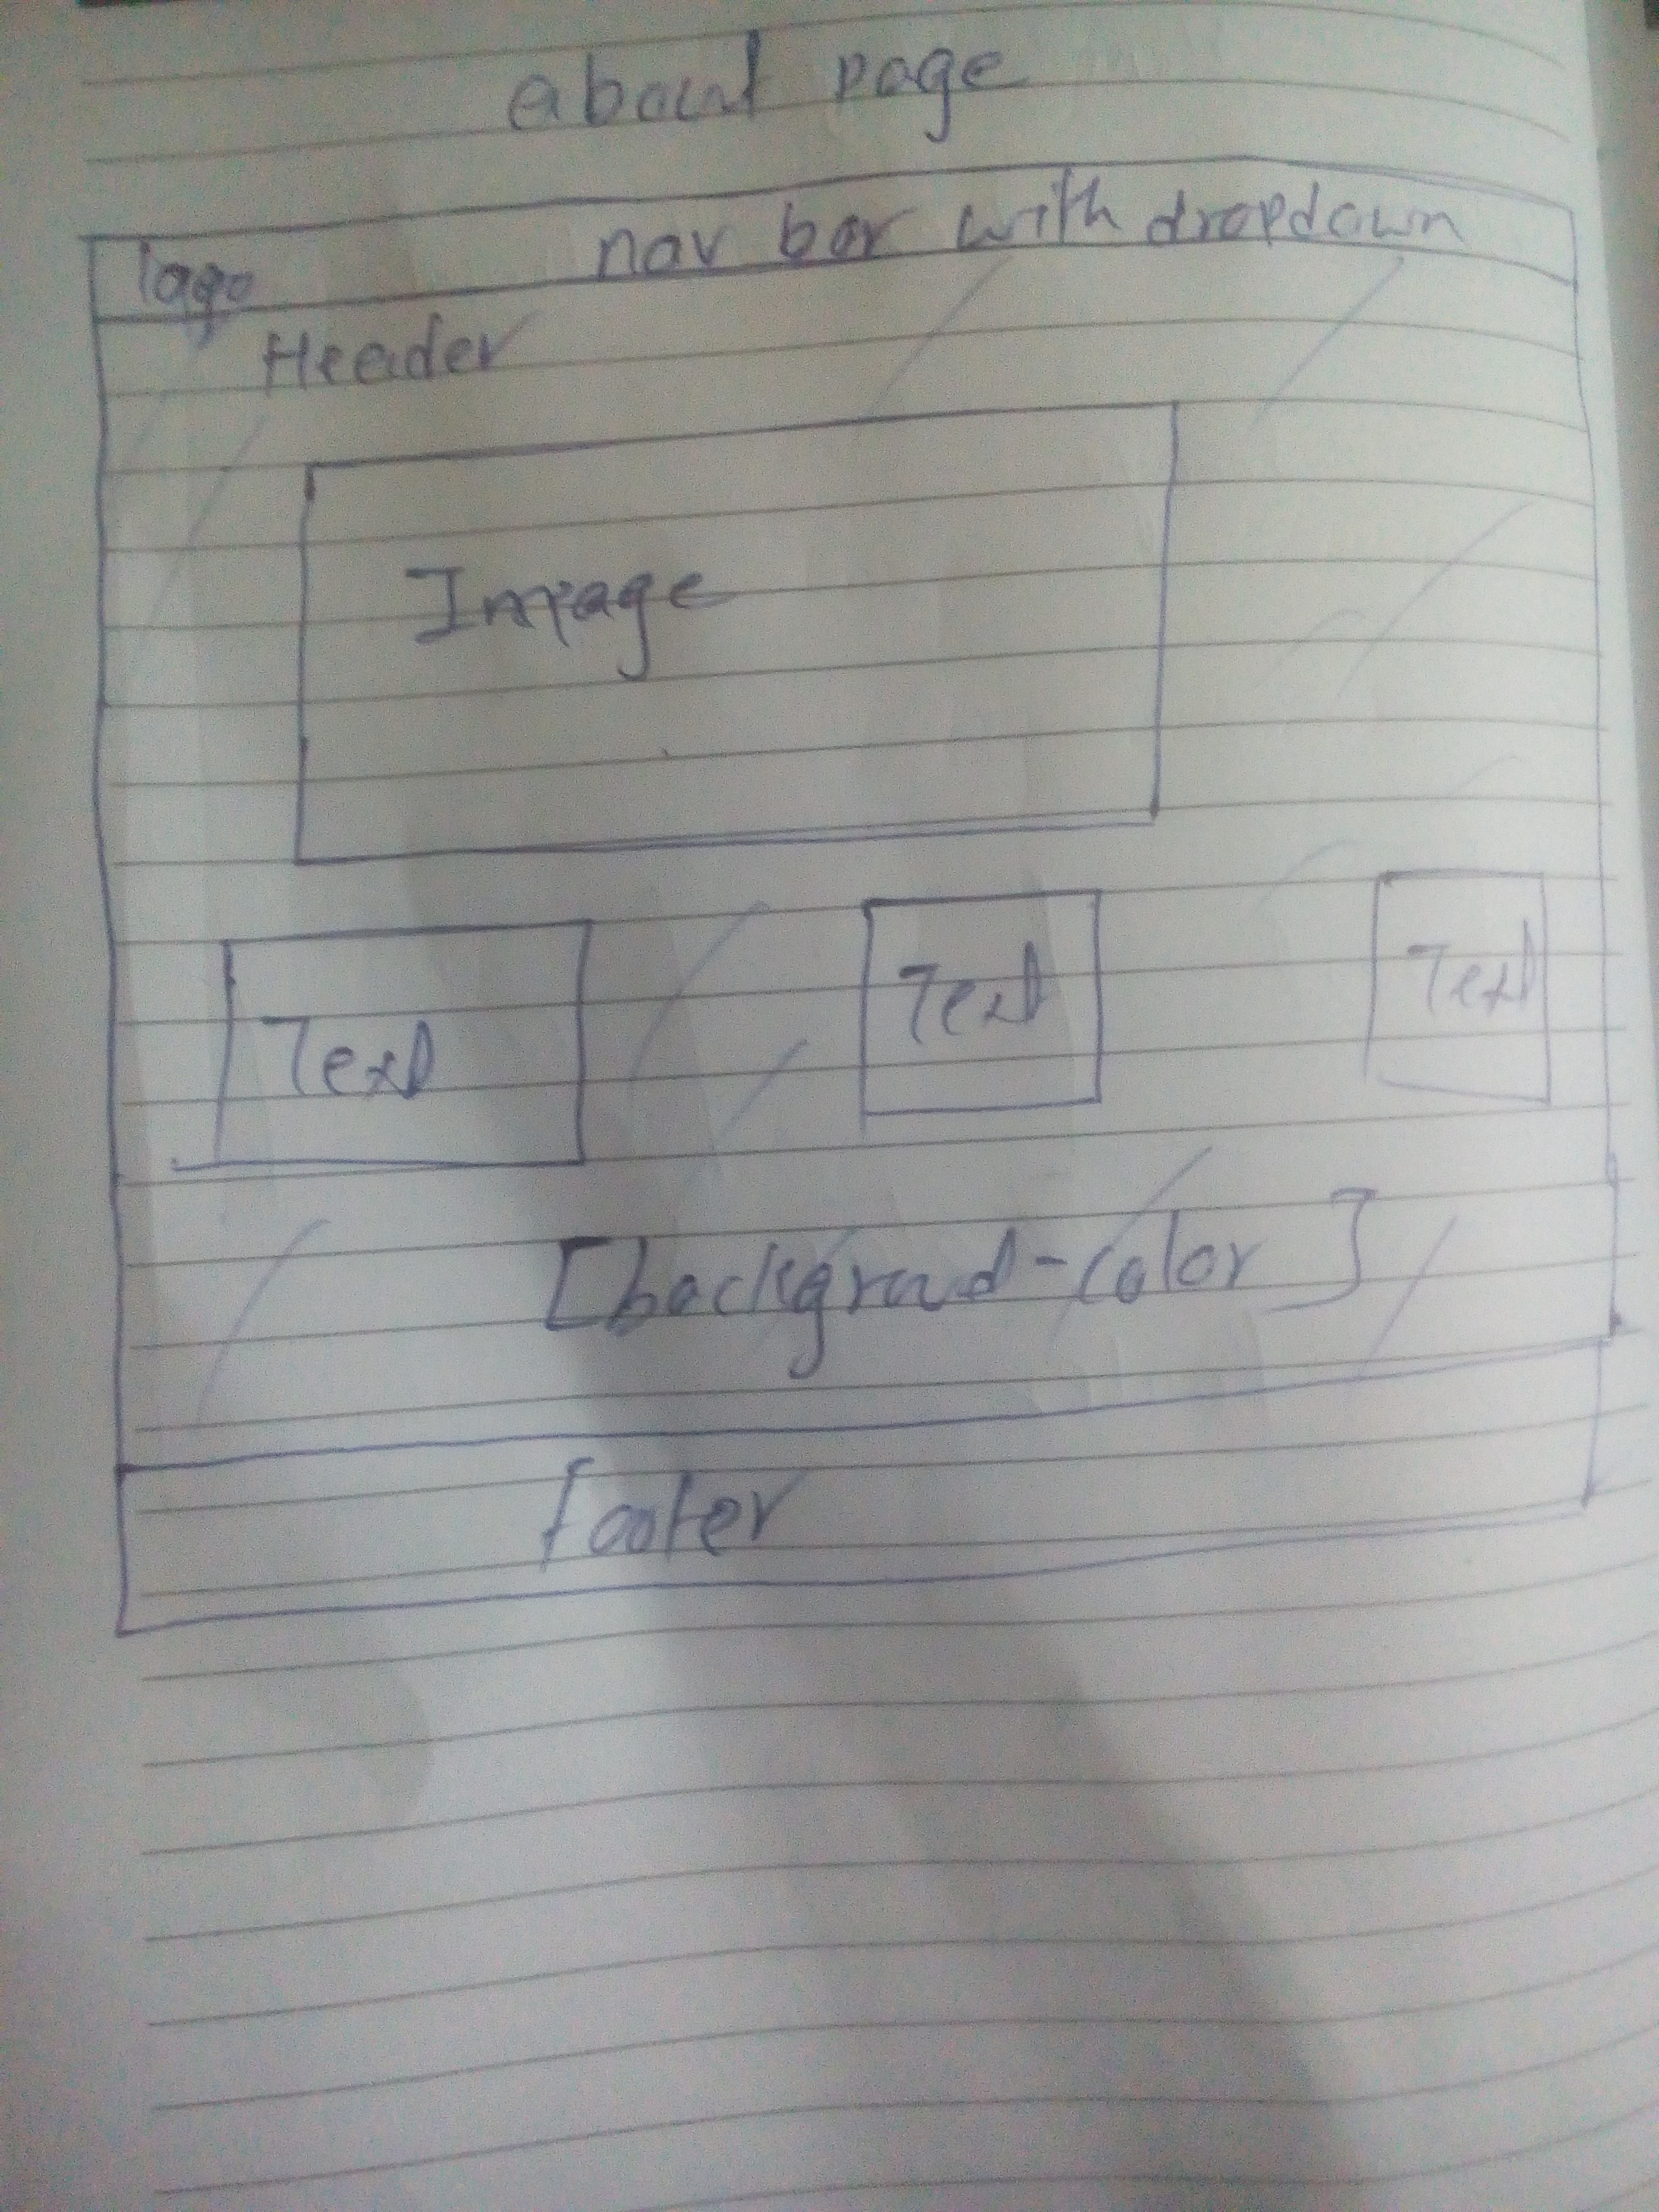 about page
logo nav bar with dropdown
Header
Image
Text Text Text
[background-color]
footer